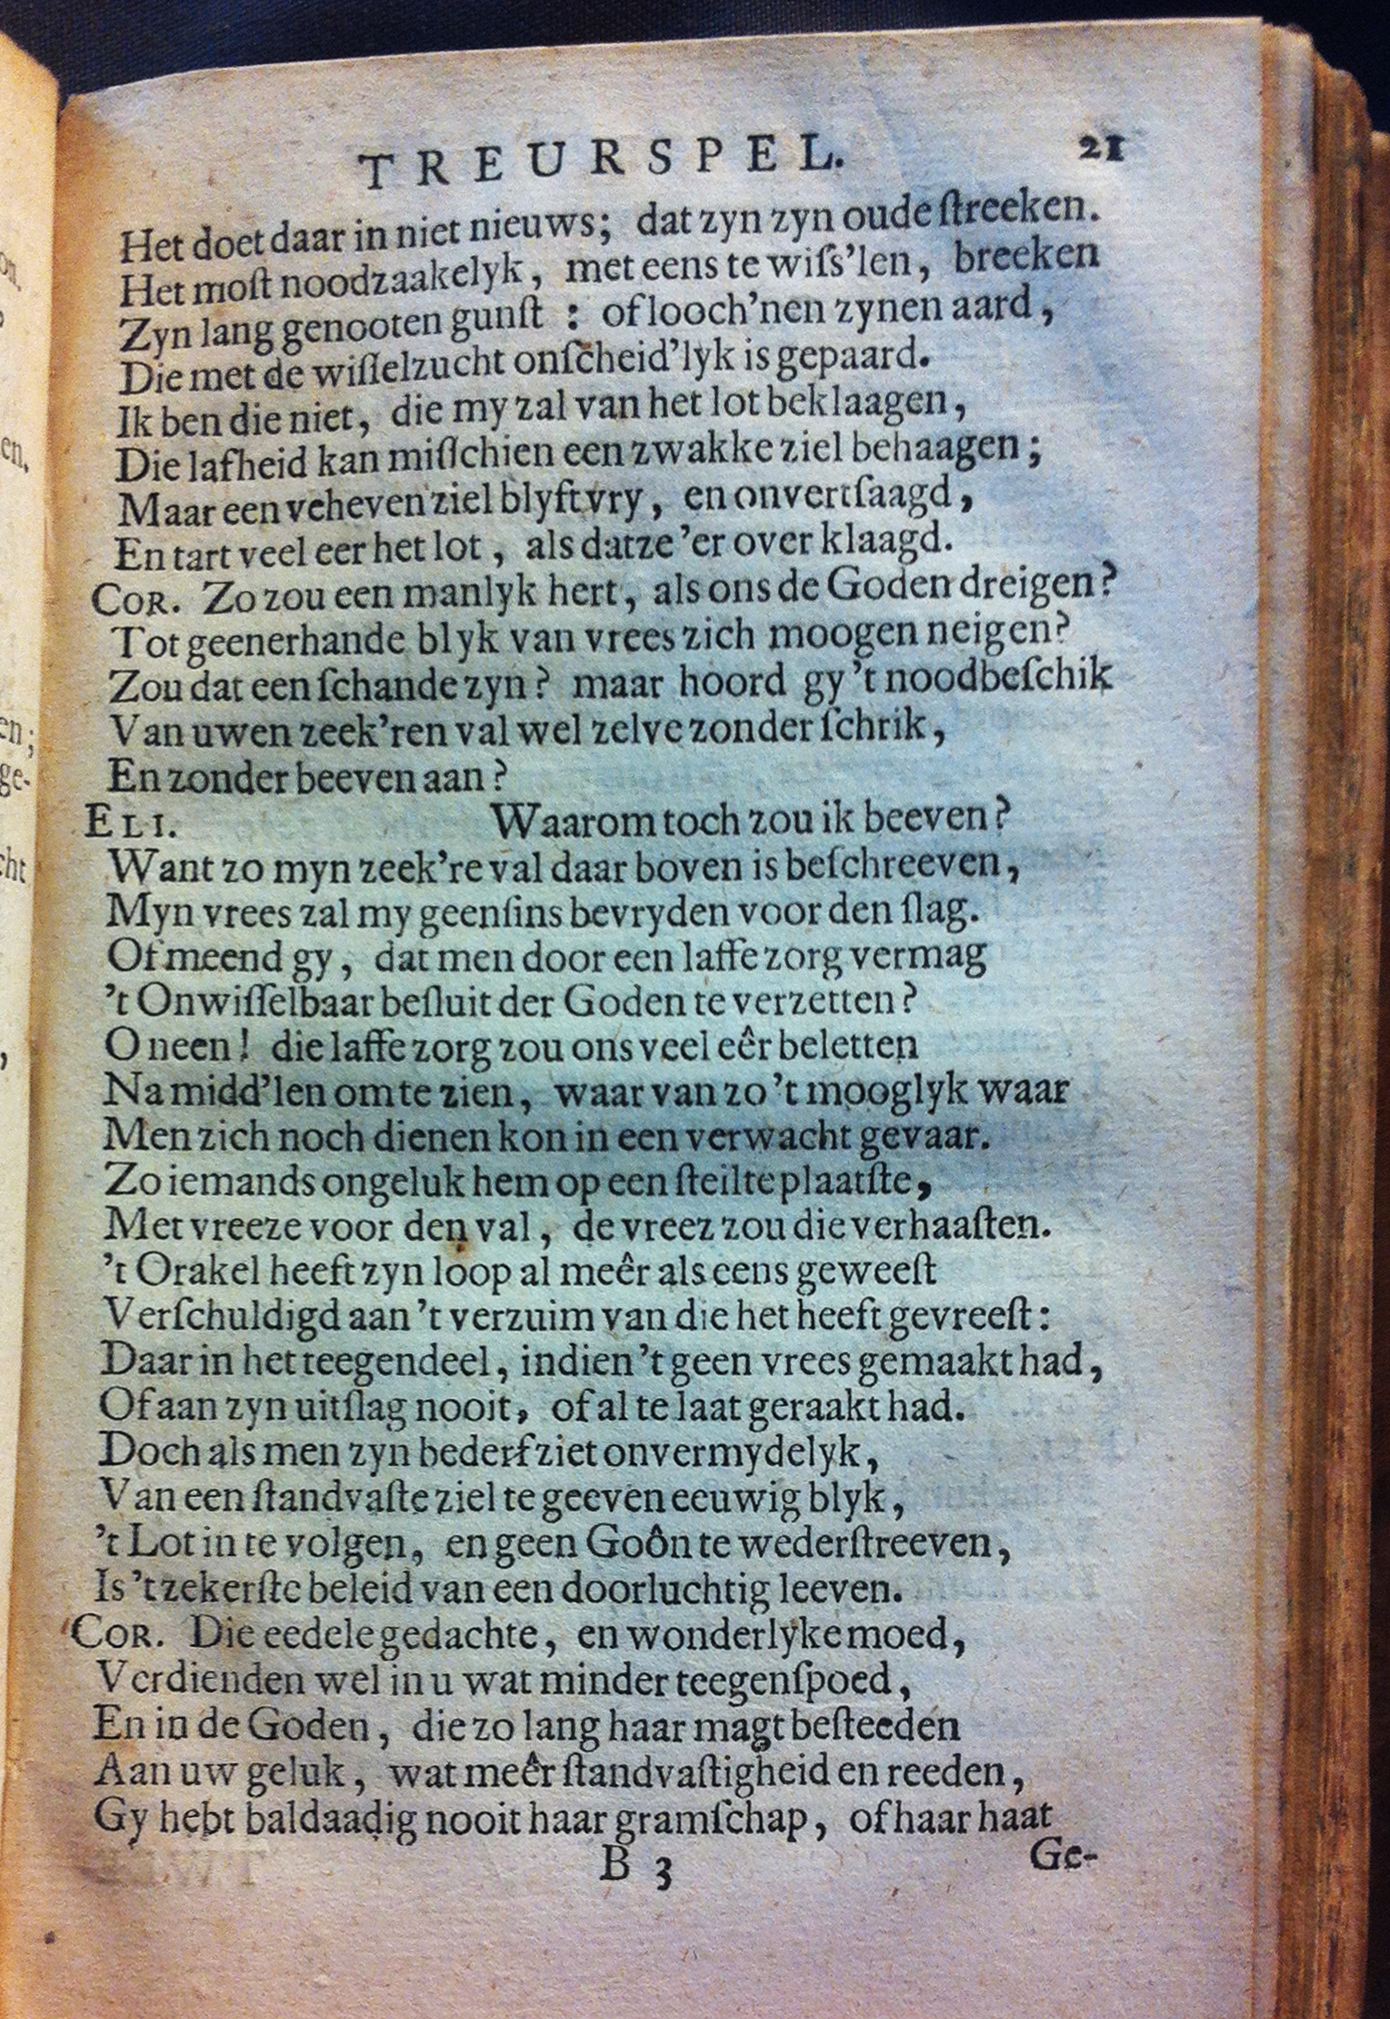 TREURSPEL. 21
Het doet daar in niet nieuws; dat zyn zyn oude ſtreeken.
Het moſt noodzaakelyk, met eens te wiſs’len, breeken
Zyn lang genooten gunſt : of looch’nen zynen aard,
Die met de wiſſelzucht onſcheid’lyk is gepaard.
Ik ben die niet, die my zal van het lot beklaagen,
Die lafheid kan miſſchien een zwakke ziel behaagen;
Maar een veheven ziel blyft vry, en onvertſaagd,
En tart veel eer het lot, als datze ’er over klaagd.
COR. Zo zou een manlyk hert, als ons de Goden dreigen?
Tot geenerhande blyk van vrees zich moogen neigen?
Zou dat een ſchande zyn? maar hoord gy ’t noodbeſchik
Van uwen zeek’ren val wel zelve zonder ſchrik,
En zonder beeven aan?
ELI. Waarom toch zou ik beeven?
Want zo myn zeek’re val daar boven is beſchreeven,
Myn vrees zal my geenſins bevryden voor den ſlag.
Of meend gy, dat men door een laffe zorg vermag
’t Onwiſſelbaar beſluit der Goden te verzetten?
O neen! die laffe zorg zou ons veel eêr beletten
Na midd’len om te zien, waar van zo ’t mooglyk waar
Men zich noch dienen kon in een verwacht gevaar.
Zo iemands ongeluk hem op een ſteilte plaatſte,
Met vreeze voor den val, de vreez zou die verhaaſten.
’t Orakel heeft zyn loop al meêr als eens geweeſt
Verſchuldigd aan ’t verzuim van die het heeft gevreeſt:
Daar in het teegendeel, indien ’t geen vrees gemaakt had,
Of aan zyn uitſlag nooit, of al te laat geraakt had.
Doch als men zyn bederf ziet onvermydelyk,
Van een ſtandvaſte ziel te geeven eeuwig blyk,
’t Lot in te volgen, en geen Goôn te wederſtreeven,
Is ’t zekerſte beleid van een doorluchtig leeven.
COR. Die eedele gedachte, en wonderlyke moed,
Verdienden wel in u wat minder teegenſpoed,
En in de Goden, die zo lang haar magt beſteeden
Aan uw geluk, wat meêr ſtandvaſtigheid en reeden,
Gy hebt baldaadig nooit haar gramſchap, of haar haat
B 3 Ge-